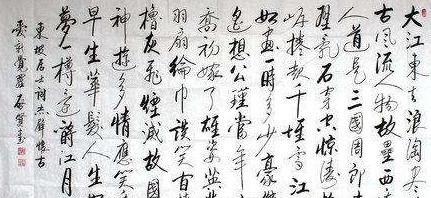 大江東去浪淘尽
古風流人物故壘西
人道是三國周郎
壁亂石穿空驚濤
岸捲起千堆雪江
如畫一時多少豪
遙想公瑾當年
喬初嫁了雄姿英
羽扇綸巾談笑間
櫓灰飛煙滅故國
神遊多情應笑
早生華髮人生
夢一樽還酹江月
東坡居士詞赤壁懷古
愛新覺羅